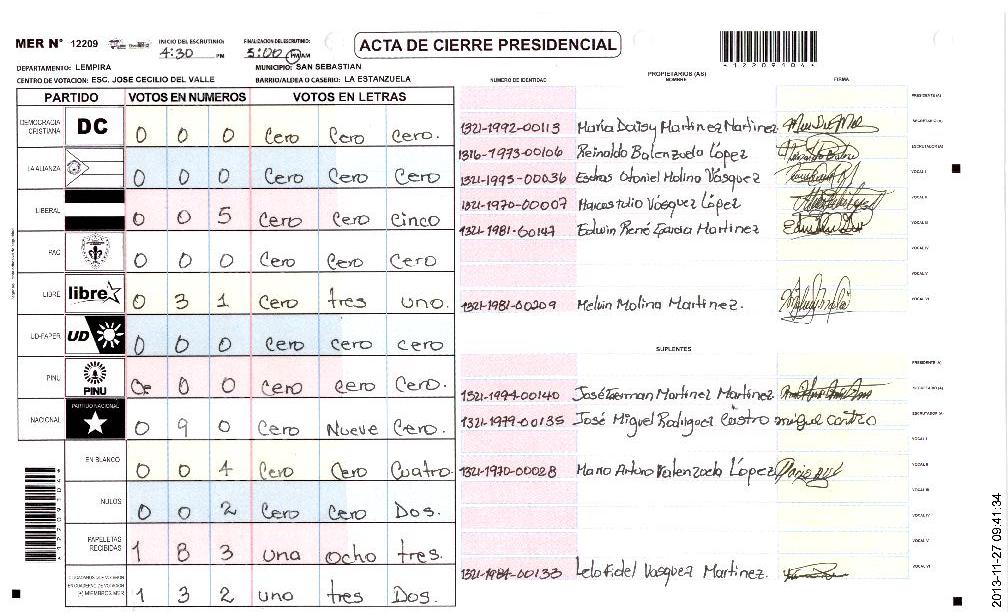 MER N° 12209
INICIO DEL ESCRUTINIO: 4:30 PM
FINALIZACION DEL ESCRUTINIO: 5:00 PM/AM
ACTA DE CIERRE PRESIDENCIAL
* 1 2 2 0 9 1 0 4 *
DEPARTAMENTO: LEMPIRA
MUNICIPIO: SAN SEBASTIAN
CENTRO DE VOTACION: ESC. JOSE CECILIO DEL VALLE
BARRIO/ALDEA O CASERIO: LA ESTANZUELA
NUMERO DE IDENTIDAD PROPIETARIOS (AS) NOMBRE FIRMA
PARTIDO VOTOS EN NUMEROS VOTOS EN LETRAS
DEMOCRACIA CRISTIANA DC 0 0 0 Cero Cero Cero.
LA ALIANZA 0 0 0 Cero Cero Cero
LIBERAL 0 0 5 Cero Cero Cinco
PAC 0 0 0 Cero Cero Cero
LIBRE libre 0 3 1 Cero tres uno.
UD-FAPER UD 0 0 0 Cero Cero Cero
PINU PINU 0 0 0 Cero Cero Cero.
NACIONAL PARTIDO NACIONAL 0 9 0 Cero Nueve Cero.
EN BLANCO 0 0 4 Cero Cero Cuatro.
NULOS 0 0 2 Cero Cero Dos.
PAPELETAS RECIBIDAS 1 8 3 una ocho tres.
CIUDADANOS QUE VOTARON EN CUADERNO DE VOTACION (+) MIEMBROS MER 1 3 2 uno tres Dos.
PRESIDENTE (A)
1321-1992-00113 Maria Daisy Martinez Martinez SECRETARIO (A)
1316-1973-00106 Reinaldo Balenzuela López ESCRUTADOR (A)
1321-1995-00036 Otoniel Molina Vásquez VOCAL I
1321-1970-00007 Vásquez López VOCAL II
1321-1981-00147 Edwin René Garcia Martinez VOCAL III
VOCAL IV
VOCAL V
1321-1981-00209 Melvin Molina Martinez. VOCAL VI
SUPLENTES
PRESIDENTE (A)
1321-1994-00140 José German Martinez Martinez SECRETARIO (A)
1321-1979-00135 José Miguel Rodriguez Castro miguel castro ESCRUTADOR (A)
VOCAL I
1321-1970-00028 Mario Arturo Valenzuela López VOCAL II
VOCAL III
VOCAL IV
VOCAL V
1321-1984-00133 Lelo Fidel Vasquez Martinez. VOCAL VI
2013-11-27 09:41:34